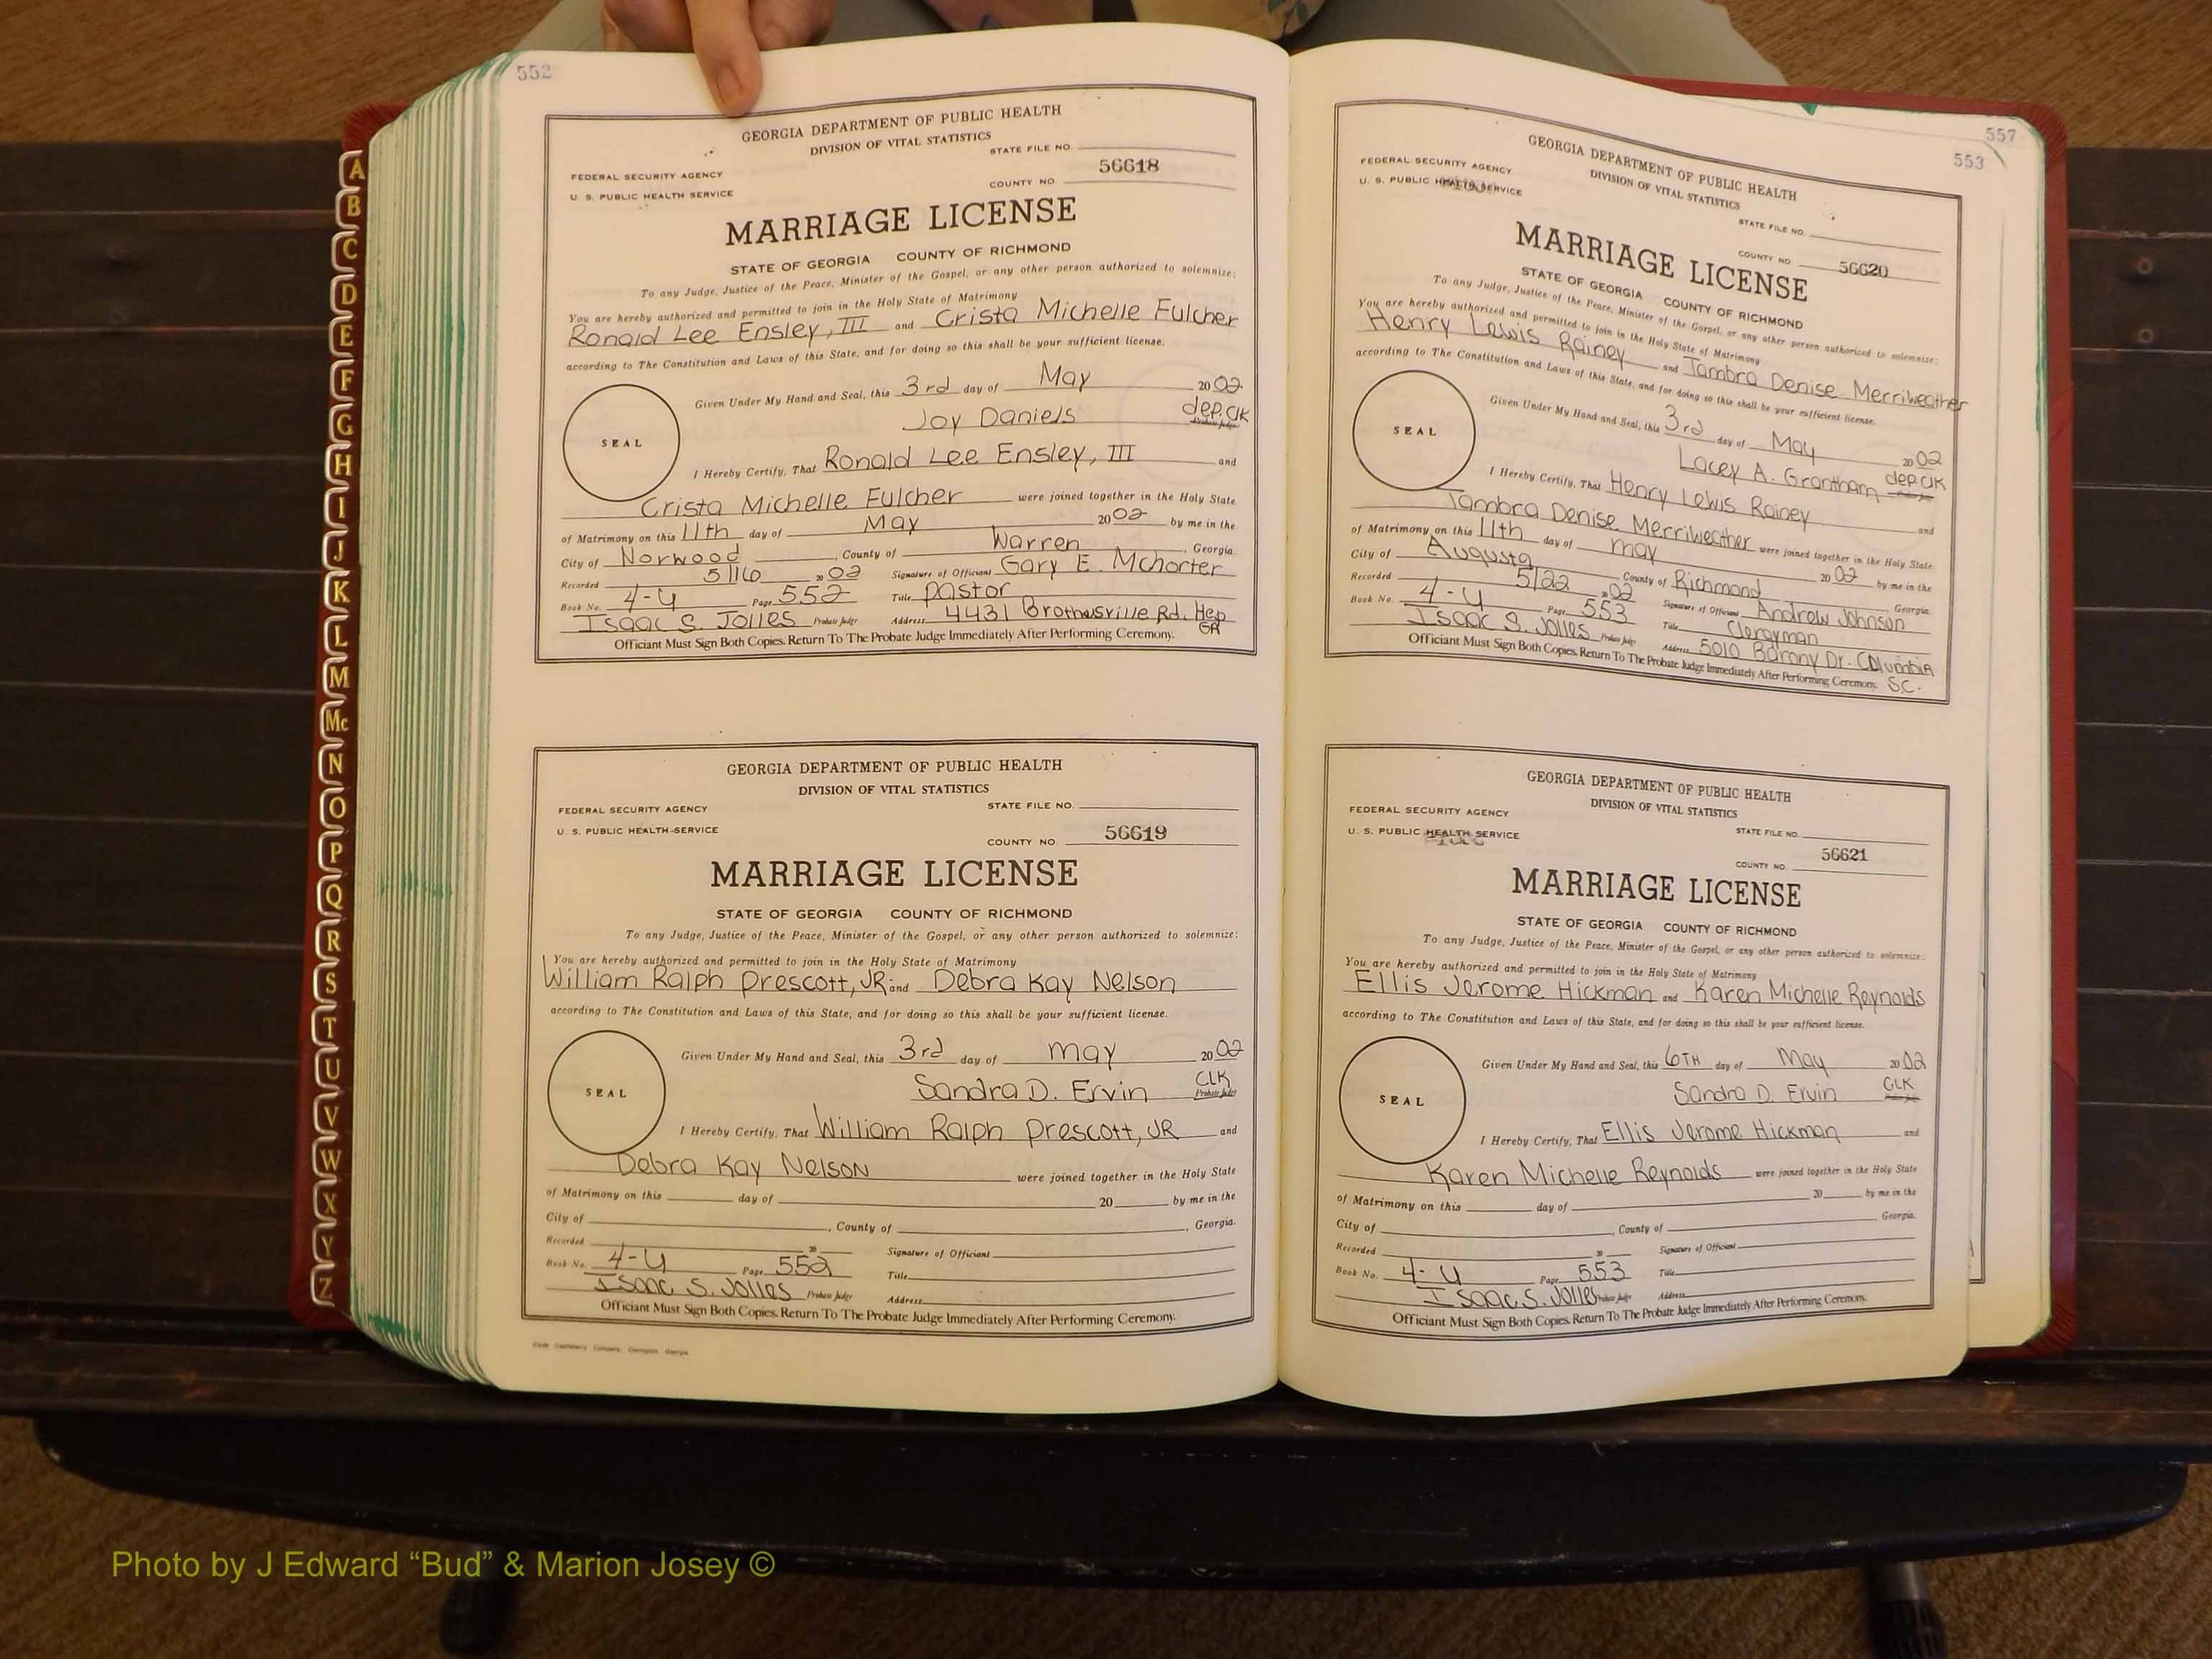 A
B
C
D
E
F
G
H
I
J
K
L
M
Mc
N
O
P
Q
R
S
T
U
V
W
X
Y
Z
552
GEORGIA DEPARTMENT OF PUBLIC HEALTH
DIVISION OF VITAL STATISTICS
STATE FILE NO.
FEDERAL SECURITY AGENCY
U. S. PUBLIC HEALTH SERVICE
COUNTY NO. 56618
MARRIAGE LICENSE
STATE OF GEORGIA COUNTY OF RICHMOND
To any Judge, Justice of the Peace, Minister of the Gospel, or any other person authorized to solemnize:
You are hereby authorized and permitted to join in the Holy State of Matrimony
Ronald Lee Ensley, III and Crista Michelle Fulcher
according to The Constitution and Laws of this State, and for doing so this shall be your sufficient license.
Given Under My Hand and Seal, this 3rd day of May 2002
Joy Daniels dep. clk
Probate Judge
SEAL
I Hereby Certify, That Ronald Lee Ensley, III and
Crista Michelle Fulcher were joined together in the Holy State
of Matrimony on this 11th day of May 2002 by me in the
City of Norwood, County of Warren, Georgia.
Recorded 5/16 2002 Signature of Officiant Gary E. McHorter
Book No. 4-U Page 552 Title Pastor
Isaac S. Jolles Probate Judge Address 4431 Rd. Hep
GA
Officiant Must Sign Both Copies. Return To The Probate Judge Immediately After Performing Ceremony.
GEORGIA DEPARTMENT OF PUBLIC HEALTH
DIVISION OF VITAL STATISTICS
FEDERAL SECURITY AGENCY STATE FILE NO.
U. S. PUBLIC HEALTH SERVICE
COUNTY NO. 56619
MARRIAGE LICENSE
STATE OF GEORGIA COUNTY OF RICHMOND
To any Judge, Justice of the Peace, Minister of the Gospel, or any other person authorized to solemnize:
You are hereby authorized and permitted to join in the Holy State of Matrimony
William Ralph Prescott, JR and Debra Kay Nelson
according to The Constitution and Laws of this State, and for doing so this shall be your sufficient license.
Given Under My Hand and Seal, this 3rd day of May 2002
Sandra D. Ervin CLK
Probate Judge
SEAL
I Hereby Certify, That William Ralph Prescott, JR and
Debra Kay Nelson were joined together in the Holy State
of Matrimony on this day of 20 by me in the
City of , County of , Georgia.
Recorded 20 Signature of Officiant
Book No. 4-U Page 552 Title
Isaac S. Jolles Probate Judge Address
Officiant Must Sign Both Copies. Return To The Probate Judge Immediately After Performing Ceremony.
557
553
GEORGIA DEPARTMENT OF PUBLIC HEALTH
DIVISION OF VITAL STATISTICS
FEDERAL SECURITY AGENCY
U. S. PUBLIC HEALTH SERVICE
STATE FILE NO.
COUNTY NO. 56620
MARRIAGE LICENSE
STATE OF GEORGIA COUNTY OF RICHMOND
To any Judge, Justice of the Peace, Minister of the Gospel, or any other person authorized to solemnize:
You are hereby authorized and permitted to join in the Holy State of Matrimony
Henry Lewis Rainey and Tambra Denise Merriweather
according to The Constitution and Laws of this State, and for doing so this shall be your sufficient license.
Given Under My Hand and Seal, this 3rd day of May 2002
Lacey A. Grantham dep. clk
SEAL
I Hereby Certify, That Henry Lewis Rainey and
Tambra Denise Merriweather were joined together in the Holy State
of Matrimony on this 11th day of May 2002 by me in the
City of Augusta, County of Richmond Georgia.
Recorded 5/22 2002 Signature of Officiant Andrew Johnson
Book No. 4-U Page 553 Title Clergyman
Isaac S. Jolles Probate Judge Address 5010 Barony Dr. Columbia
SC.
Officiant Must Sign Both Copies. Return To The Probate Judge Immediately After Performing Ceremony.
GEORGIA DEPARTMENT OF PUBLIC HEALTH
DIVISION OF VITAL STATISTICS
FEDERAL SECURITY AGENCY
U. S. PUBLIC HEALTH SERVICE
STATE FILE NO.
COUNTY NO. 56621
MARRIAGE LICENSE
STATE OF GEORGIA COUNTY OF RICHMOND
To any Judge, Justice of the Peace, Minister of the Gospel, or any other person authorized to solemnize:
You are hereby authorized and permitted to join in the Holy State of Matrimony
Ellis Jerome Hickman and Karen Michelle Reynolds
according to The Constitution and Laws of this State, and for doing so this shall be your sufficient license.
Given Under My Hand and Seal, this 6TH day of May 2002
Sandra D. Ervin CLK
SEAL
I Hereby Certify, That Ellis Jerome Hickman and
Karen Michelle Reynolds were joined together in the Holy State
of Matrimony on this day of 20 by me in the
City of , County of Georgia.
Recorded 20 Signature of Officiant
Book No. 4-U Page 553 Title
Isaac S. Jolles Probate Judge Address
Officiant Must Sign Both Copies. Return To The Probate Judge Immediately After Performing Ceremony.
Photo by J Edward “Bud” & Marion Josey ©